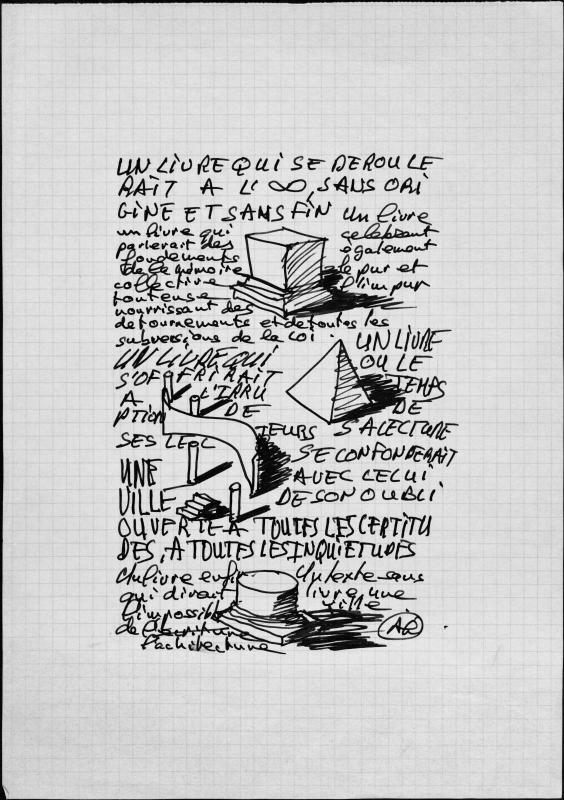 UN LIVRE QUI SE DEROULE
RAIT A L' ∞, SANS ORI
GINE ET SANS FIN
un livre qui
parlerait des
fondements
de la mémoire
collective
tout en se
nourrissant des
detournements et de toutes les
subversions de la LOI.
un livre
celebrant
également
le pur et
l'impur
UN LIVRE QUI
S'OFFRIRAIT
A L'IRRU
PTION DE
SES LEC TEURS
UN LIVRE
OU LE
TEMPS
DE
SA LECTURE
SE CONFONDERAIT
AVEC CELUI
DE SON OUBLI
UNE
VILLE
OUVERTE A TOUTES LES CERTITU
DES, A TOUTES LES INQUIETUDES
Un livre enfin
qui dirait
l'impossible
de l'écriture
l'architecture
Un texte sans
livre, une
ville